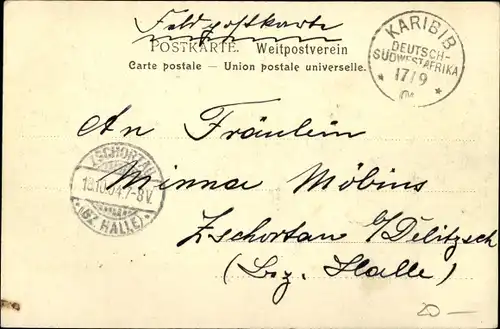 Feldpostkarte
POSTKARTE. Weltpostverein
Carte postale — Union postale universelle.
KARIBIB
DEUTSCH-
SÜDWESTAFRIKA
* 17/9 *
An Fräulein
ZSCHORTAU
18.10.04.7-8V.
*(BZ. HALLE)*
Minna Möbius
Zschortau b/Delitzsch
(Bez. Halle)
20 —